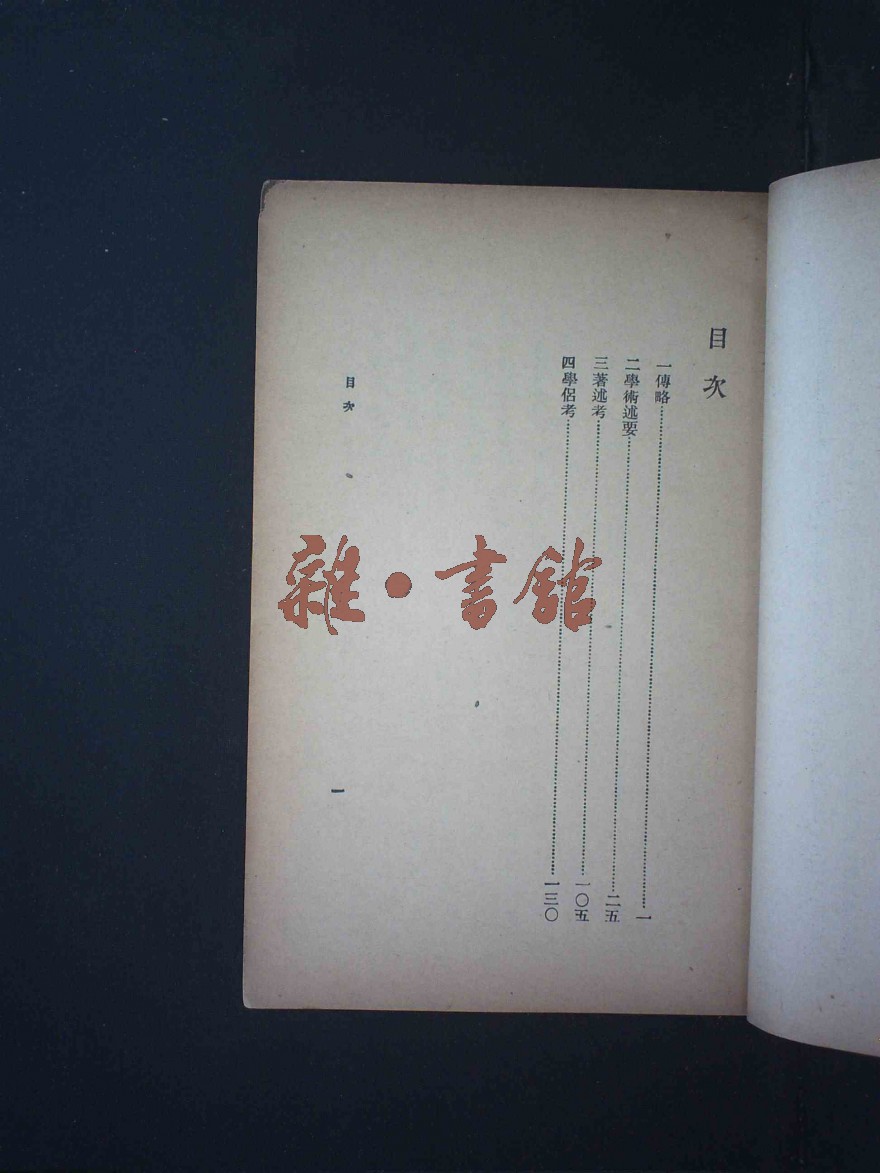 目次
一傳略……一
二學術述要……二五
三著述考……一〇五
四學侶考……一三〇
目次
一
雜·書館